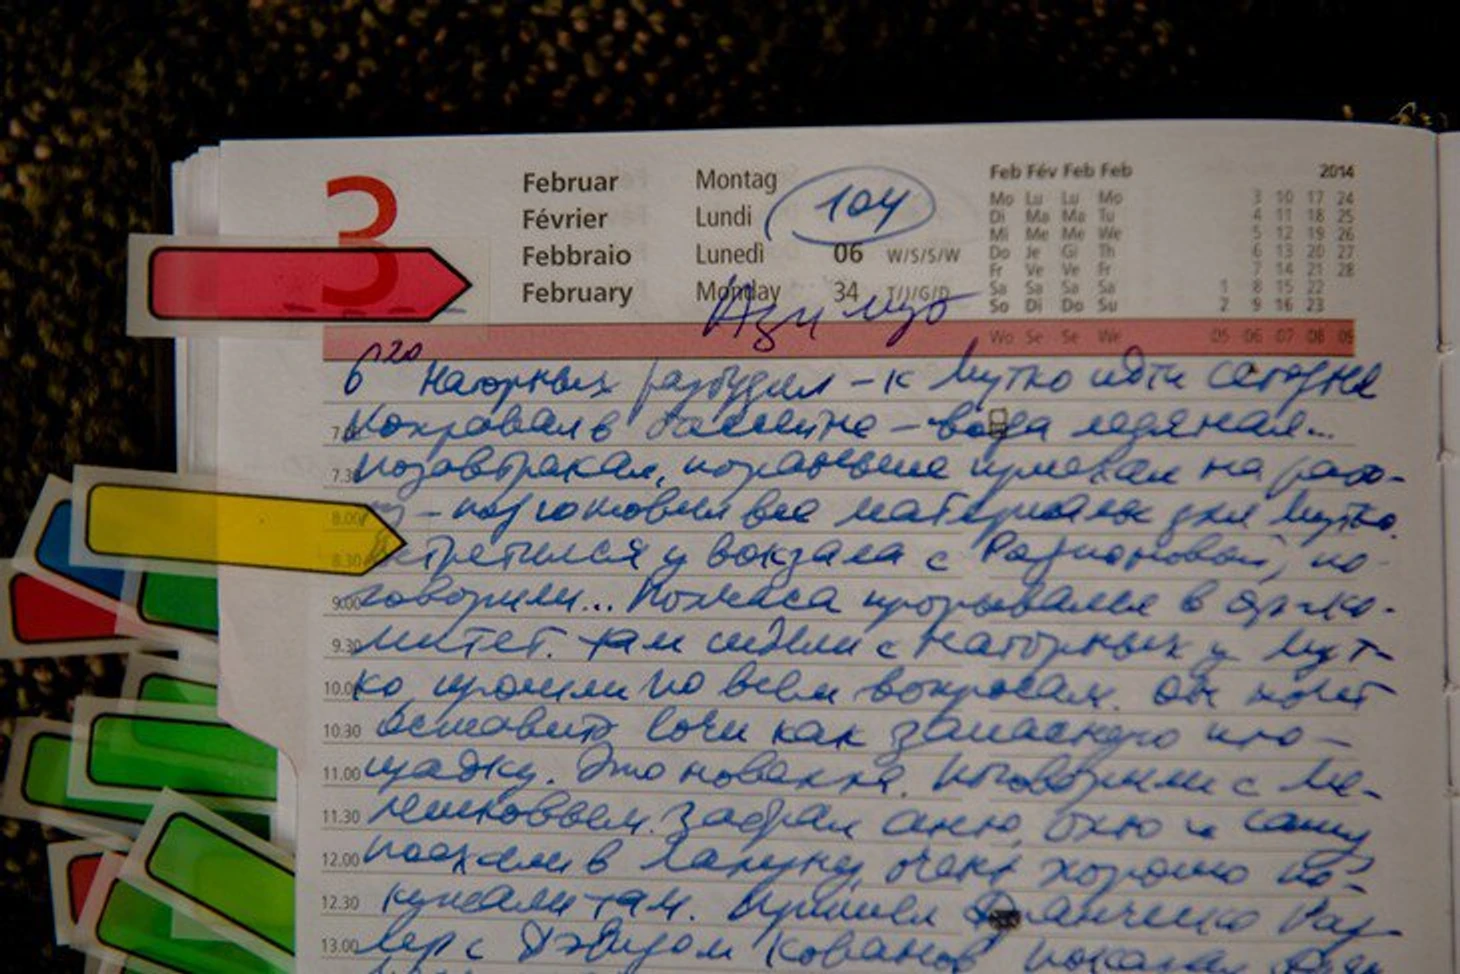 3
Februar Montag 104 Feb Fév Feb Feb 2014
Février Lundi
Febbraio Lunedì 06 W/S/S/W
February Monday 34 T/J/G/D
Mo Lu Lu Mo 3 10 17 24
Di Ma Ma Tu 4 11 18 25
Mi Me Me We 5 12 19 26
Do Je Gi Th 6 13 20 27
Fr Ve Ve Fr 7 14 21 28
Sa Sa Sa Sa 1 8 15 22
So Di Do Su 2 9 16 23
Wo Se Se We 05 06 07 08 09
Азимут
6 20 Нагорных разбудил – к Мутко идти сегодня
в бассейне – вода ледяная...
7.30 позавтракал, пораньше приехал на рабо-
8.00 ту – подготовил все материалы для Мутко.
8.30 Встретился у вокзала с Родионовой, по-
9.00 говорили... Полчаса прорывался в оргко-
9.30 митет. Там сидели с Нагорных у Мут-
10.00 ко, прошли по всем вопросам. Он хочет
10.30 оставить Сочи как запасную пло-
11.00 щадку. Это новелла. Поговорили с Ме-
11.30 Забрал и Сашу
12.00 поехали в очень хорошо по-
12.30 кушали там. Пришел
13.00 с Дэвидом показал